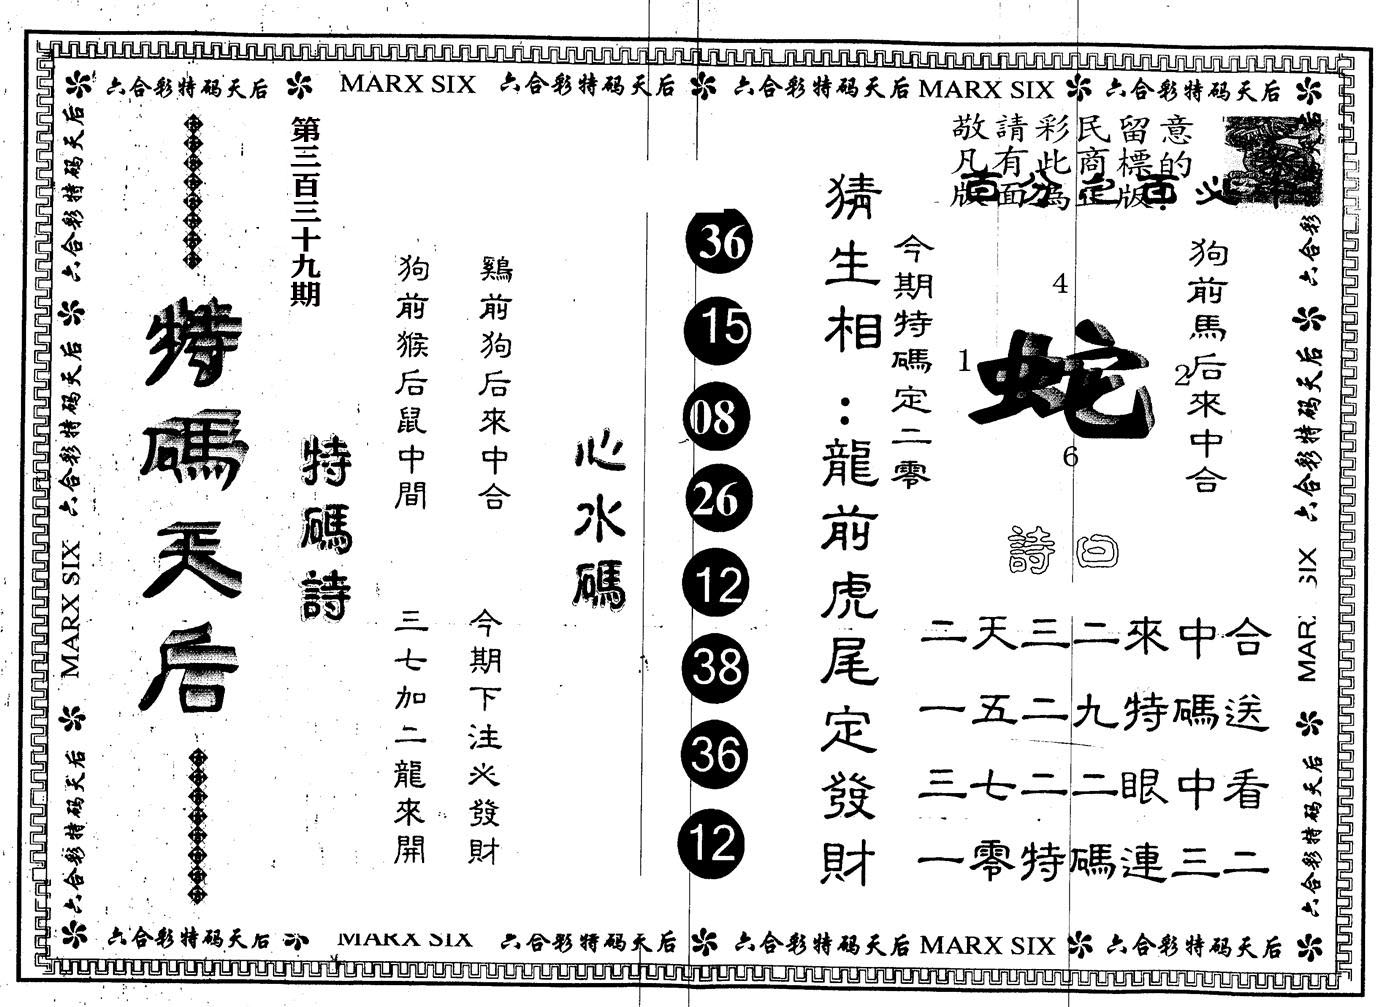 六合彩特码天后 MARX SIX 六合彩特码天后 六合彩特码天后 MARX SIX 六合彩特码天后
敬請彩民留意
凡有此商標的
版面為正版
百分之百必中
狗前馬后來中合
今期特碼定二零
4
1
蛇
2
6
詩曰
二天三二來中合
一五二九特碼送
三七二二眼中看
一零特碼連三二
猜生相：龍前虎尾定發財
36
15
08
26
12
38
36
12
心水碼
鷄前狗后來中合
今期下注必發財
狗前猴后鼠中間
三七加二龍來開
特碼詩
第三百三十九期
特碼天后
六合彩特码天后
六合彩特码天后
MARX SIX
六合彩特码天后
六合彩特码天后
六合彩特码天后
六合彩特码天后
六合彩特码天后 MARX SIX 六合彩特码天后 六合彩特码天后 MARX SIX 六合彩特码天后